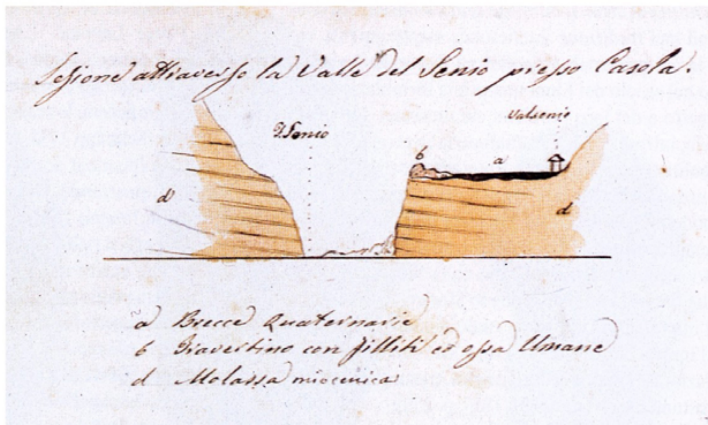 Sessone attraverso la Valle del Senio presso Casola.
Valsenio
F. Senio
b
a
d
d
a Brecce Quaternarie
b Travertino con filliti ed ossa Umane
d Molassa miocenica